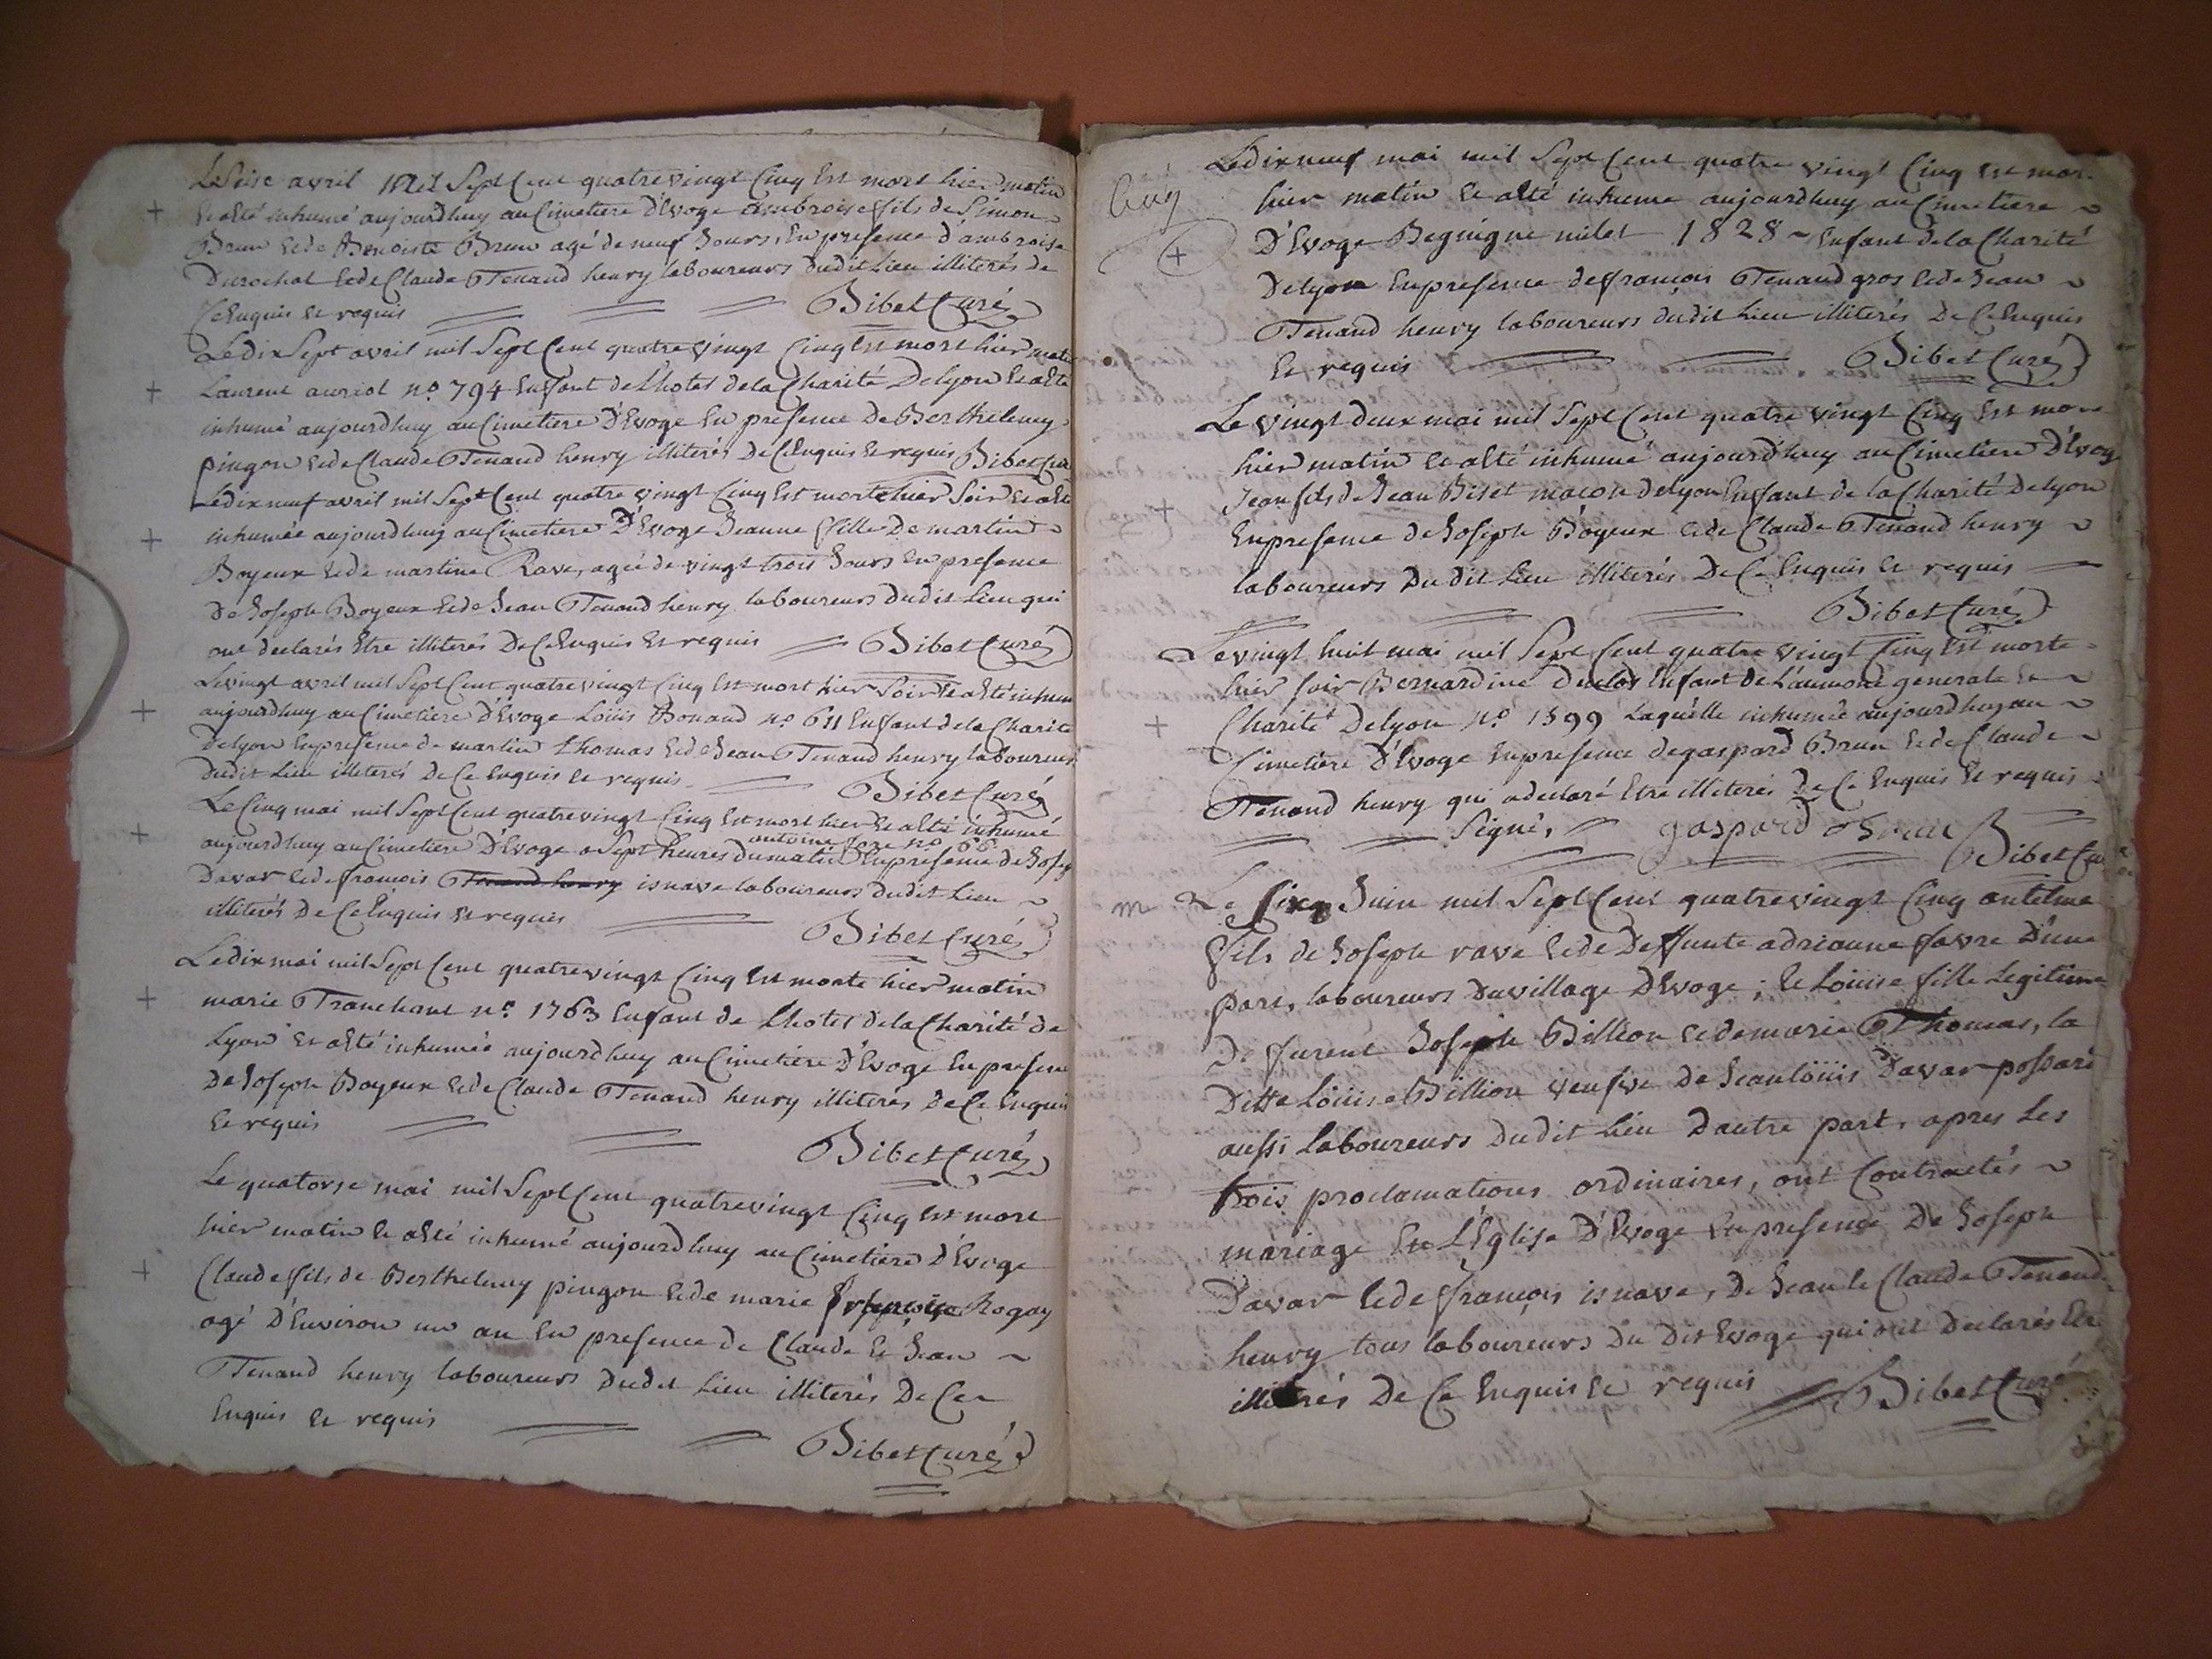 Le Seise avril mil Sept Cent quatre vingt Cinq Est mort hier matin
Et a Eté inhumé aujourdhuy au Cimetiere D'Evoge ambroise ffils de Simon
Brun Et de Benoiste Brun agé de neuf Jours, En presence d'ambroise
Durochat Et de Claude Tenand henry laboureurs dudit Lieu illiterés de
Ce Enquis Et requis Bibet Curé
Le Dix Sept avril mil Sept Cent quatre vingt Cinq Est mort hier matin
Laurent auriol no. 794 Enffant de L'hotel de la Charité De lyon Et a Eté
inhumé aujourdhuy au Cimetiere D'Evoge En presence De Berthelemy
pingon Et de Claude Tenand henry illiterés De Ce Enquis Et requis Bibet Curé
Le dix neuf avril mil Sept Cent quatre vingt Cinq Est morte hier Soir Et a Eté
inhumée aujourdhuy au Cimetiere D'Evoge Jeanne ffille De martin
Boyeux Et de martine Rave, agée de vingt trois Jours En presence
De Joseph Boyeux Et de Jean Tenand henry laboureurs Dudit Lieu qui
ont declarés Etre illiterés De Ce Enquis Et requis Bibet Curé
Le vingt avril mil Sept Cent quatre vingt Cinq Est mort hier Soir Et a Eté inhumé
aujourdhuy au Cimetiere D'Evoge Loüis Bonand no. 611 Enffant de la Charité
De lyon En presence de martin Thomas Et de Jean Tenand henry laboureurs
Dudit Lieu illiterés De Ce Enquis Et requis Bibet Curé
Le Cinq mai mil Sept Cent quatre vingt Cinq Est mort hier Et a Eté inhumé
antoine no. 66
aujourdhuy au Cimetiere D'Evoge a Sept heures du matin En presence de Joseph
Davar Et de francois Tenand henry isnave laboureurs Dudit Lieu
illiterés De Ce Enquis Et requis Bibet Curé
Le dix mai mil Sept Cent quatre vingt Cinq Est morte hier matin
marie Tranchant no. 1763 Enfant de L'hotel de la Charité de
Lyon Et a Eté inhumée aujourdhuy au Cimetiere D'Evoge En presence
De Joseph Boyeux Et de Claude Tenand henry illiterés De Ce Enquis
Et requis Bibet Curé
Le quatorse mai mil Sept Cent quatre vingt Cinq Est mort
hier matin Et a Eté inhumé aujourdhuy au Cimetiere D'Evoge
Claude ffils de Berthelemy pingon Et de marie Rogay
agé D'Environ un an En presence de Claude Et Jean
Tenand henry laboureurs Dudit Lieu illiterés De Ce
Enquis Et requis
Bibet Curé
Le dix neuf mai mil Sept Cent quatre vingt Cinq Est mort
hier matin Et a Eté inhumé aujourdhuy au Cimetiere
D'Evoge Begnigne milet 1828 Enfant de la Charité
De lyon En presence de francois Tenand gros Et de Jean
Tenand henry laboureurs dudit Lieu illiterés De Ce Enquis
Et requis Bibet Curé
Le vingt deux mai mil Sept Cent quatre vingt Cinq Est mort
hier matin Et a Eté inhumé aujourd'huy au Cimetiere D'Evoge
Jean fils de Jean Biset macon De lyon Enffant de la Charité De lyon
En presence de Joseph Boyeux Et de Claude Tenand henry
laboureurs Du dit Lieu illiterés De Ce Enquis Et requis
Bibet Curé
Le vingt huit mai mil Sept Cent quatre vingt Cinq Est morte
hier soir Bernardine Duclos Enfant de L'aumone generale Et
Charité De lyon no. 1399 Laquelle inhumée aujourdhuy au
Cimetiere D'Evoge En presence de gaspard Brun Et de Claude
Tenand henry qui a declaré Etre illiterés De Ce Enquis Et requis
Signé, gaspard Brun Bibet Curé
m Le Cinq Juin mil Sept Cent quatre vingt Cinq antelme
ffils de Joseph rave Et de Deffunte adrianne favre D'une
part, laboureurs Du village D'Evoge ; Et Loüise fille Legitime
De ffurent Joseph Billion Et de marie Thomas, la
Ditte Loüise Billion veufve De Jean loüis Davar possari
aussi Laboureurs Dudit Lieu D'autre part, apres Les
trois proclamations ordinaires, ont Contractés
mariage En L'Eglise D'Evoge En presence De Joseph
Davar Et de ffrancois isnave, De Jean Et Claude Tenand
henry tous laboureurs Du Dit Evoge qui ont Declarés Etre
illiterés De Ce Enquis Et requis Bibet Curé